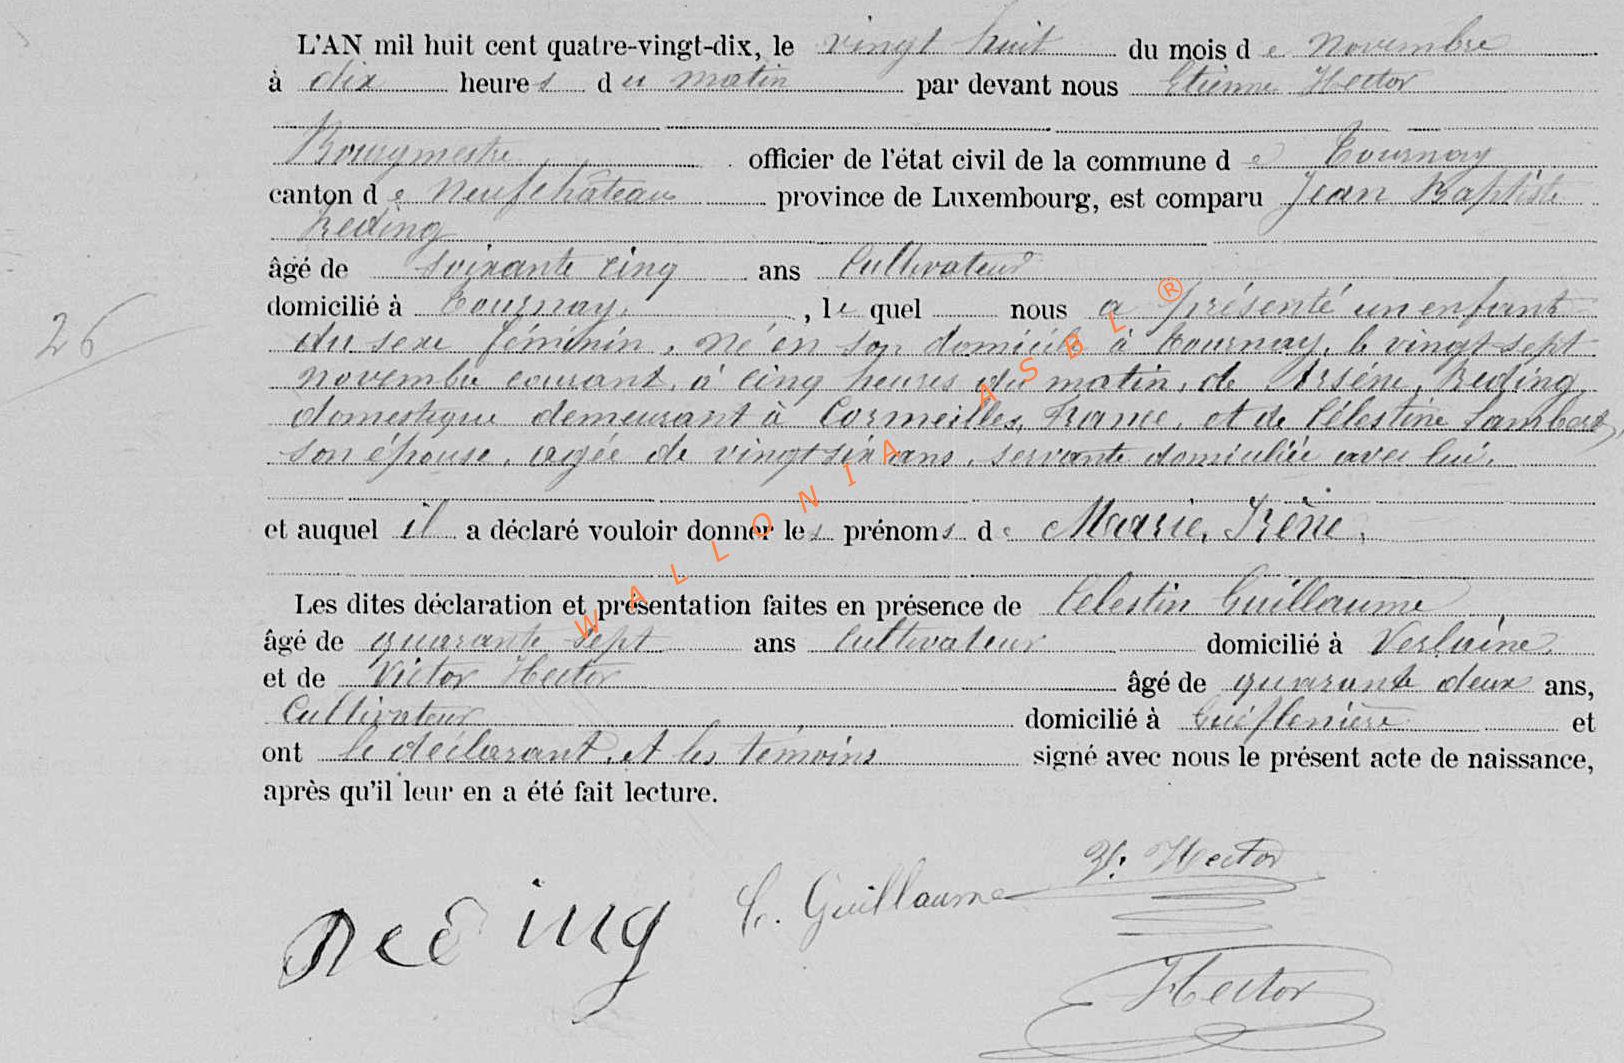 L'AN mil huit cent quatre-vingt-dix, le vingt huit du mois de Novembre
à dix heures du matin par devant nous Etienne Hector
Bourgmestre, officier de l'état civil de la commune de Tournay
canton de Neufchâteau province de Luxembourg, est comparu Jean Baptiste
Reding
âgé de soixante cinq ans Cultivateur
domicilié à Tournay, lequel nous a présenté un enfant
26
du sexe féminin, né en son domicile à Tournay, le vingt sept
novembre courant, à cinq heures du matin, de Arsène, Reding
domestique demeurant à Cormeilles, France, et de Célestine Lambert,
son épouse, agée de vingt six ans, servante domiciliée avec lui.
et auquel il a déclaré vouloir donner les prénoms de Marie, Irène,
Les dites déclaration et présentation faites en présence de Célestin Guillaume
âgé de quarante sept ans Cultivateur domicilié à Verlaine,
et de Victor Hector âgé de quarante deux ans,
Cultivateur domicilié à et
ont le déclarant, et les témoins signé avec nous le présent acte de naissance,
après qu'il leur en a été fait lecture.
V. Hector
Reding C. Guillaume
Hector
WALLONIA ASBL ®